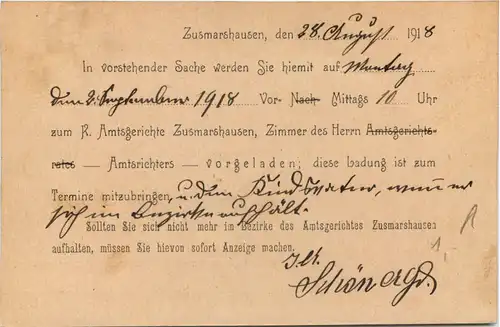 Zusmarshausen, den 28. August 1918
In vorstehender Sache werden Sie hiemit auf Montag
den 2. September 1918 Vor- Nach- Mittags 10 Uhr
zum K. Amtsgerichte Zusmarshausen, Zimmer des Herrn Amtsgerichts-
rates — Amtsrichters — vorgeladen; diese Ladung ist zum
Termine mitzubringen, u. dem Kindsvater, wenn er
sich im Bezirke aufhält.
Sollten Sie sich nicht mehr im Bezirke des Amtsgerichtes Zusmarshausen
aufhalten, müssen Sie hievon sofort Anzeige machen.
Schön